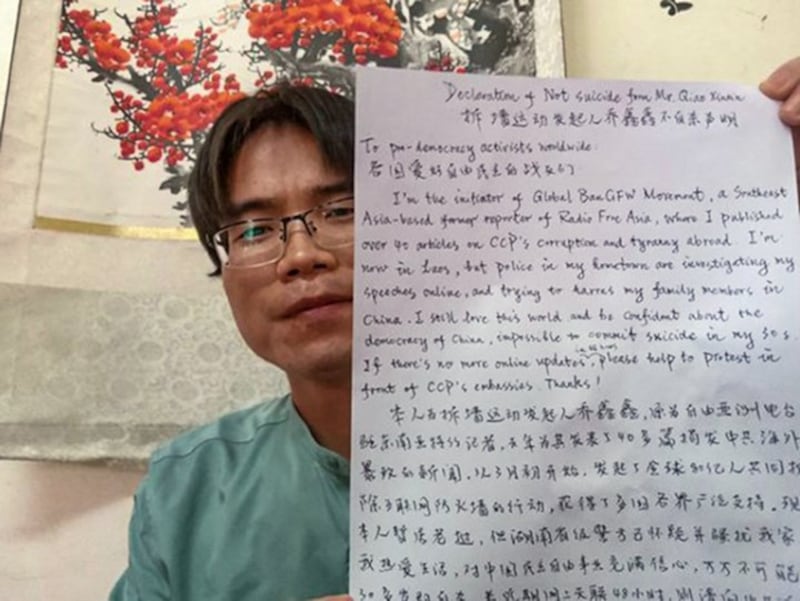 Declaration of Not suicide from Mr. Qiao Xinxin
拆墙运动发起人乔鑫鑫不自杀声明
To pro-democracy activists worldwide:
各国爱好自由民主的战友们
I'm the initiator of Global BanGFW Movement, a Southeast
Asia-based former reporter of Radio Free Asia, where I published
over 40 articles on CCP's corruption and tyranny abroad. I'm
now in Laos, but police in my hometown are investigating my
speeches online, and trying to harass my family members in
China. I still love this world and be confident about the
democracy of China, impossible to commit suicide in my 30s.
If there's no more online updates in 48 hours, please help to protest in
front of CCP's embassies. Thanks!
本人为拆墙运动发起人乔鑫鑫,原为自由亚洲电台
驻东南亚特约记者,去年为其发表了40多篇揭发中共海外
暴政的新闻,从3月初开始,发起了全球和亿人共同拆
除互联网防火墙的行动,获得了多国各界广泛支持。现
本人暂居老挝,但湖南省级警方已怀疑并骚扰我家
我热爱生活,对中国民主自由事业充满信心,万万不可能
30多岁就自杀。若我期间上失联48小时,则请向